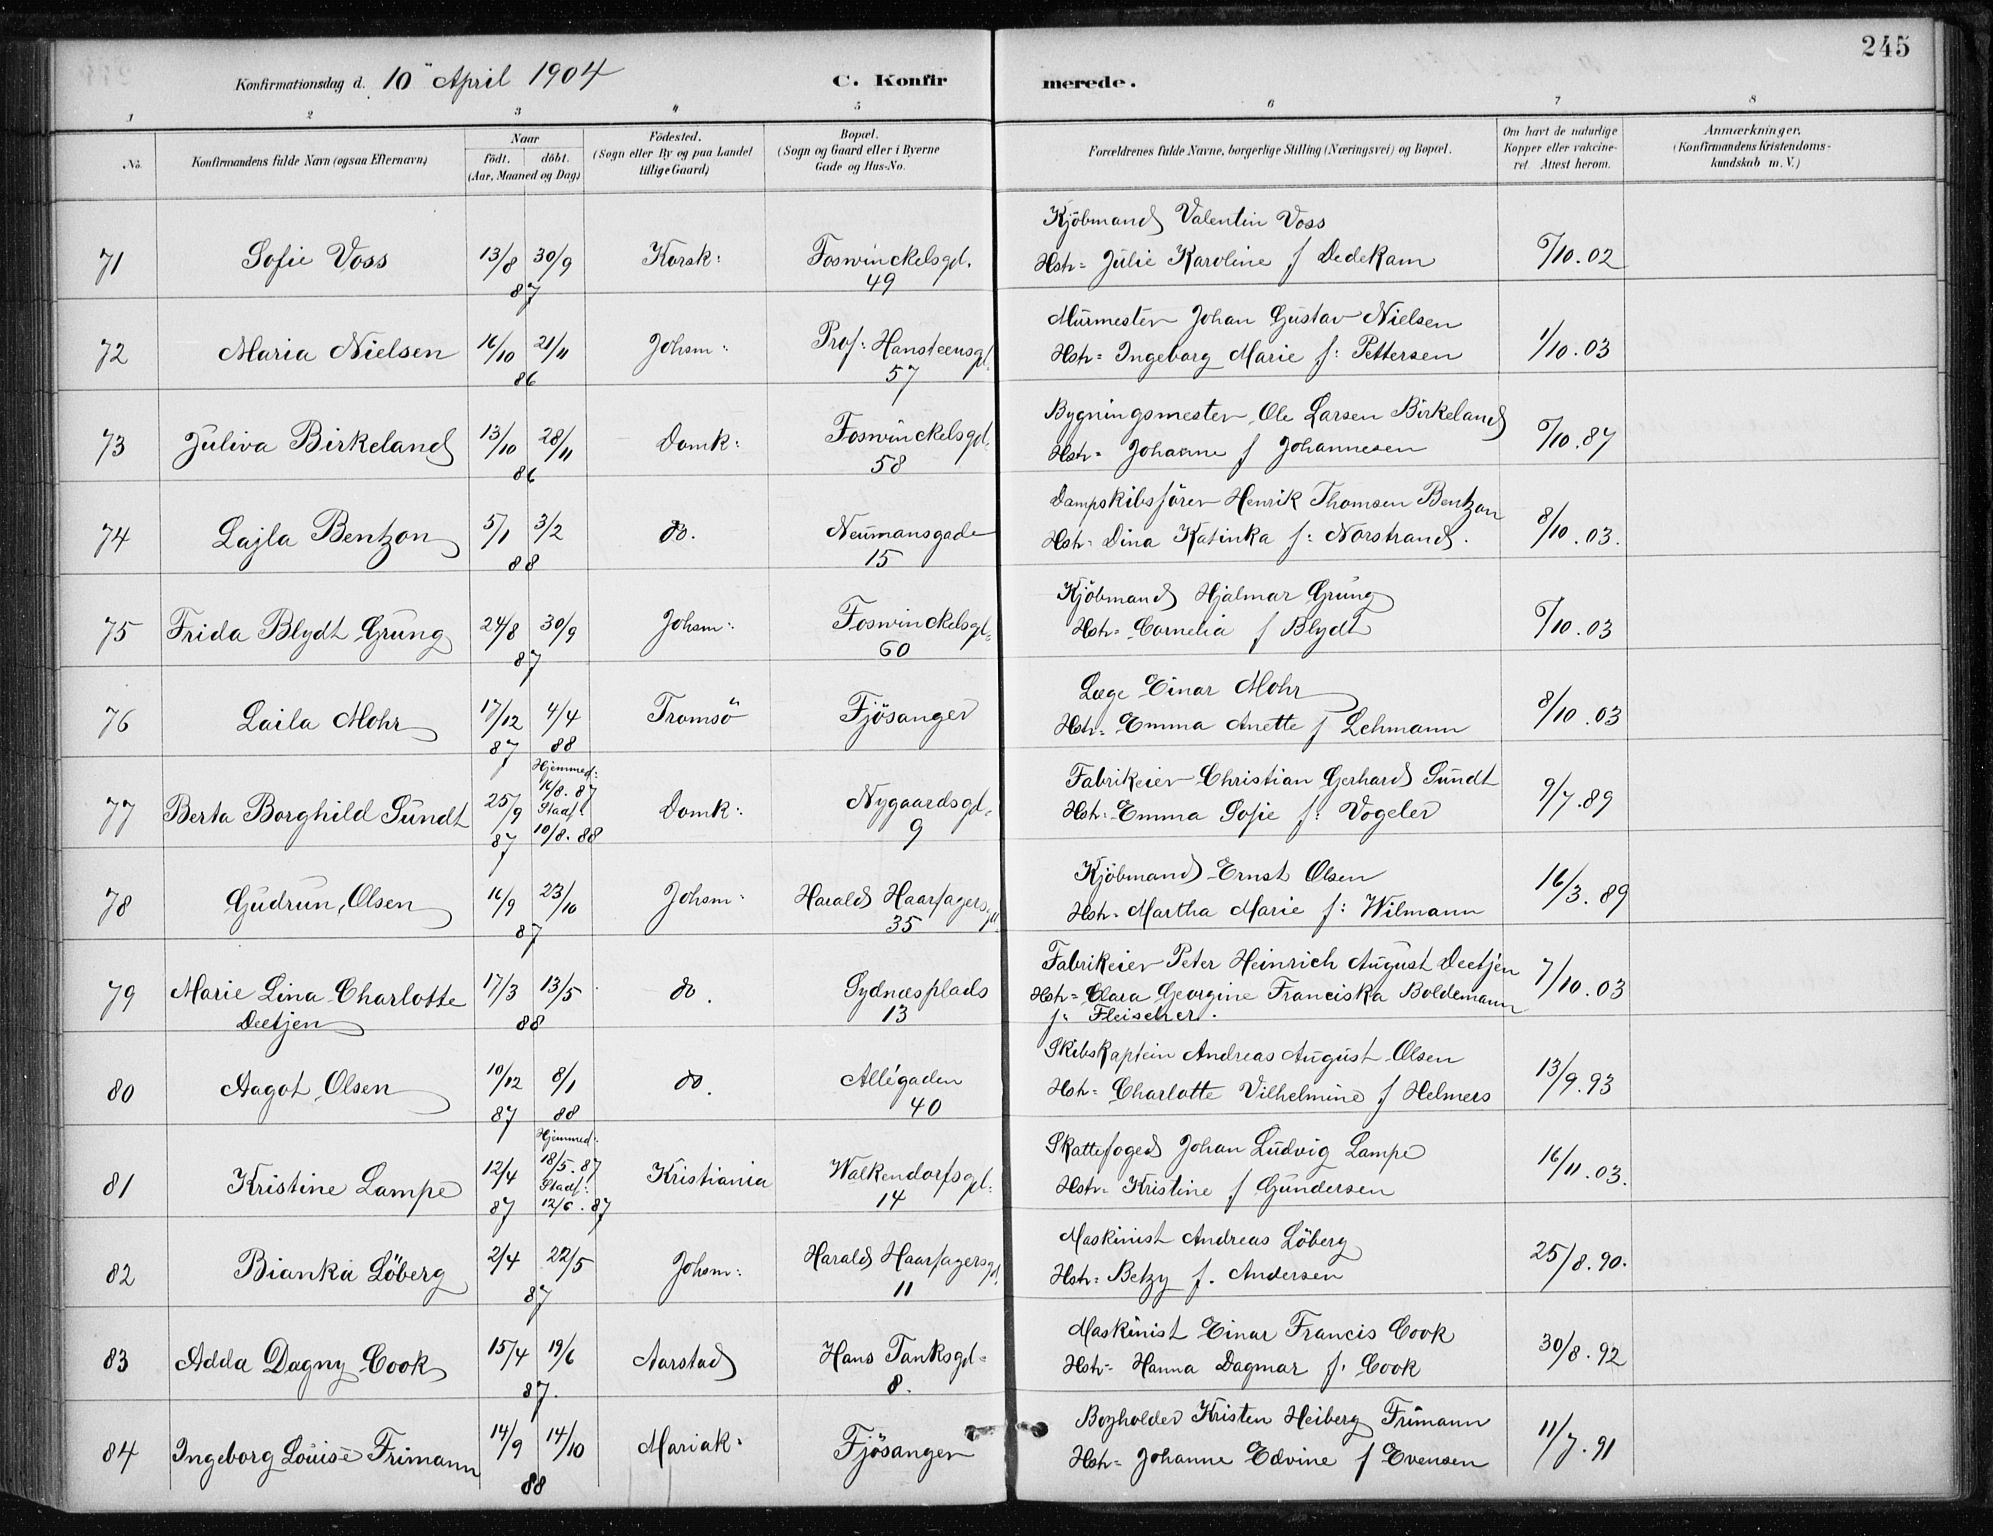 245
Konfirmationsdag d. 10 April 1904
C. Konfirmerede.
1 2 3 4 5 6 7 8
No.
Konfirmandens fulde Navn (ogsaa Efternavn)
Naar
födt. döbt.
(Aar, Maaned og Dag)
Födested.
(Sogn eller By og paa Landet
tillige Gaard)
Bopæl.
(Sogn og Gaard eller i Byerne
Gade og Hus-No.
Forældrenes fulde Navne, borgerlige Stilling (Næringsvei) og Bopæl.
Om havt de naturlige
Kopper eller vakcine-
ret. Attest herom.
Anmærkninger.
(Konfirmandens Kristendoms-
kundskab m. V.)
Kjöbmand Valentin Voss
71 Sofie Voss 13/8 30/9 Korsk: Foswinckelsgd. Hstr= Julie Karoline f Dedekam /10.02
87 49
Murmester Johan Gustav Nielsen
72 Maria Nielsen 16/10 21/11 Johsm: Prof: Hansteensgd. Hstr= Ingeborg Marie f: Pettersen 1/10.03
86 57
Bygningsmester Ole Larsen Birkeland
73 Juliva Birkeland 13/10 28/11 Domk: Foswinckelsgd. Hstr= Johanne f Johannesen /10.87
86 58
Dampskibsförer Henrik Thomsen Bentzon
74 Lajla Bentzon 5/1 3/2 do. Neumansgade Hstr= Dina Katinka f: Norstrand. 8/10.03.
88 15
Kjöbmand Hjalmar Grung
75 Frida Blydt Grung 24/8 30/9 Johsm: Foswinckelsgd= Hstr= Cornelia f Blydt /10.03
87 60
Læge Einar Mohr
76 Laila Mohr 17/12 4/4 Tromsö Fjösanger Hstr= Emma Anette f Lehmann 8/10.03
87 88
Hjemmed:
16/8.87
Fabrikeier Christian Gerhard Sundt
77 Berta Borghild Sundt 25/9 Stadf: Domk: Nygaardsgd= Hstr= Emma Sofie f: Vogeler 9/7.89
87 10/8.88 9
Kjöbmand Ernst Olsen
78 Gudrun Olsen 16/9 23/10 Johsm: Harald Haarfagersgd. Hstr= Martha Marie f: Wilmann 16/3.89
87 35
Fabrikeier Peter Heinrich August Deetjen
79 Marie Lina Charlotte 17/3 13/5 do. Sydnæsplads Hstr= Clara Georgine Franciska Boldemann 7/10.03
Deetjen 88 13 f: Fleischer.
Skibskaptein Andreas August Olsen
80 Aagot Olsen 10/12 8/1 do. Allégaden Hstr= Charlotte Vilhelmine f Helmers 13/9.93
87 88 40
Hjemmed:
18/5.87
Skattefoged Johan Ludvig Lampe
81 Kristine Lampe 12/4 Stadf: Kristiania Walkendorfsgd: Hstr= Kristine f Gundersen 16/11.03.
87 12/6.87 14
Maskinist Andreas Löberg
82 Bianka Löberg 2/4 22/5 Johsm: Harald Haarfagersgd. Hstr= Betzy f. Andersen 25/8.90.
87 11
Maskinist Einar Francis Cook
83 Adda Dagny Cook 15/4 19/6 Aarstad Hans Tanksgd= Hstr= Hanna Dagmar f. Cook 30/8.92
87. 8.
Bogholder Kristen Heiberg Frimann
84 Ingeborg Louise Frimann 14/9 14/10 Mariak: Fjösanger Hstr= Johanne Edvine f Evensen 11/7.91
88